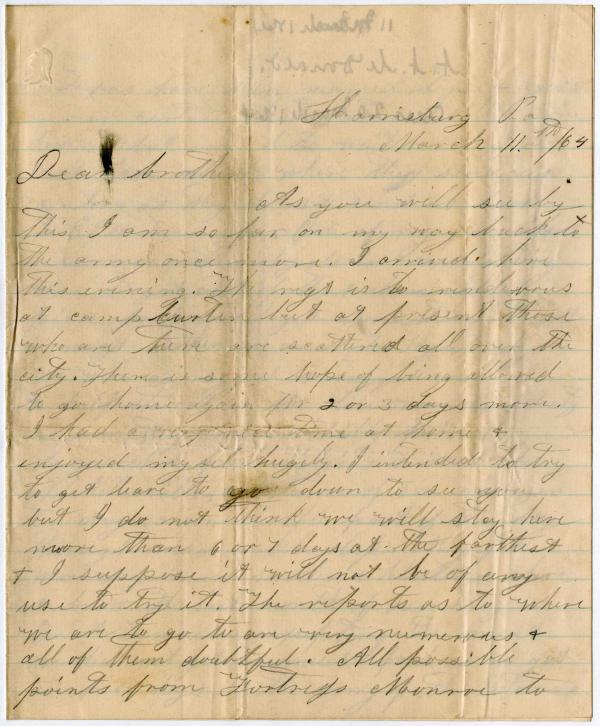 Harrisburg Pa
March 11.th /64
Dear brother
As you will see by
this I am so far on my way back to
the army once more. I arrived here
this evening. The regt is to rendevous
at camp Curtin but at present those
who are there are scattered all over the
city. There is some hope of being allowed
to go home again for 2 or 3 days more.
I had a very nice time at home &
enjoyed myself hugely. I intended to try
to get leave to go down to see you
but I do not think we will stay here
moore than 6 or 7 days at the farthest
& I suppose it will not be of any
use to try it. The reports as to where
we are to go to are very numerous &
all of them doubtful. All possible
points from Fortress Monroe to